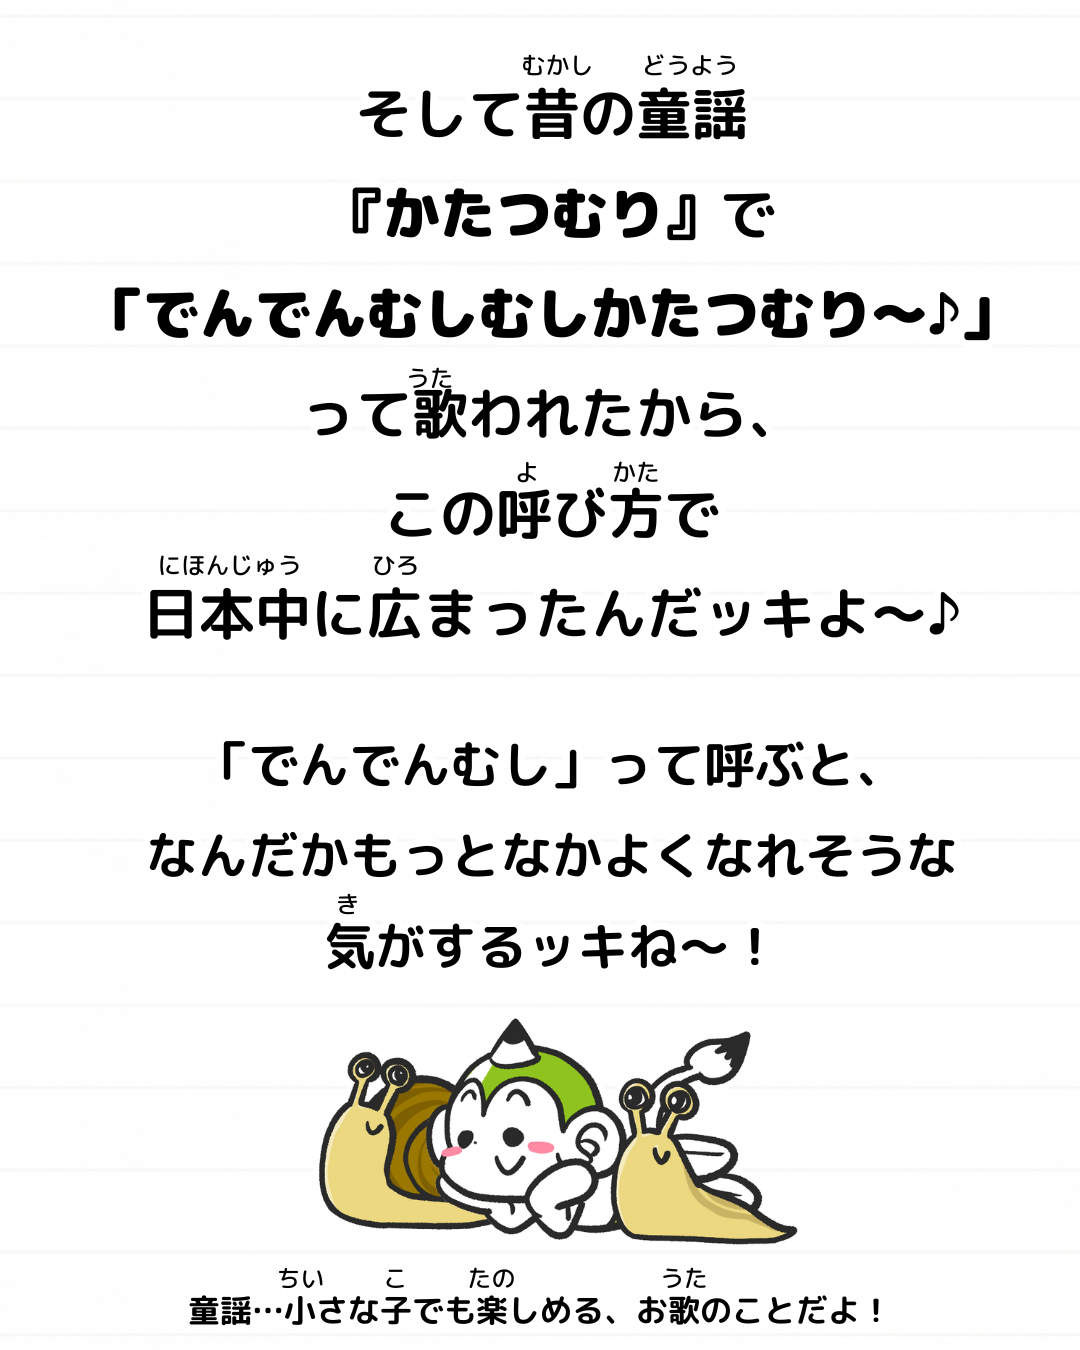 むかし どうよう
そして昔の童謡
『かたつむり』で
「でんでんむしむしかたつむり〜♪」
うた
って歌われたから、
よ かた
この呼び方で
にほんじゅう ひろ
日本中に広まったんだッキよ〜♪
「でんでんむし」って呼ぶと、
なんだかもっとなかよくなれそうな
き
気がするッキね〜！
ちい こ たの うた
童謡…小さな子でも楽しめる、お歌のことだよ！